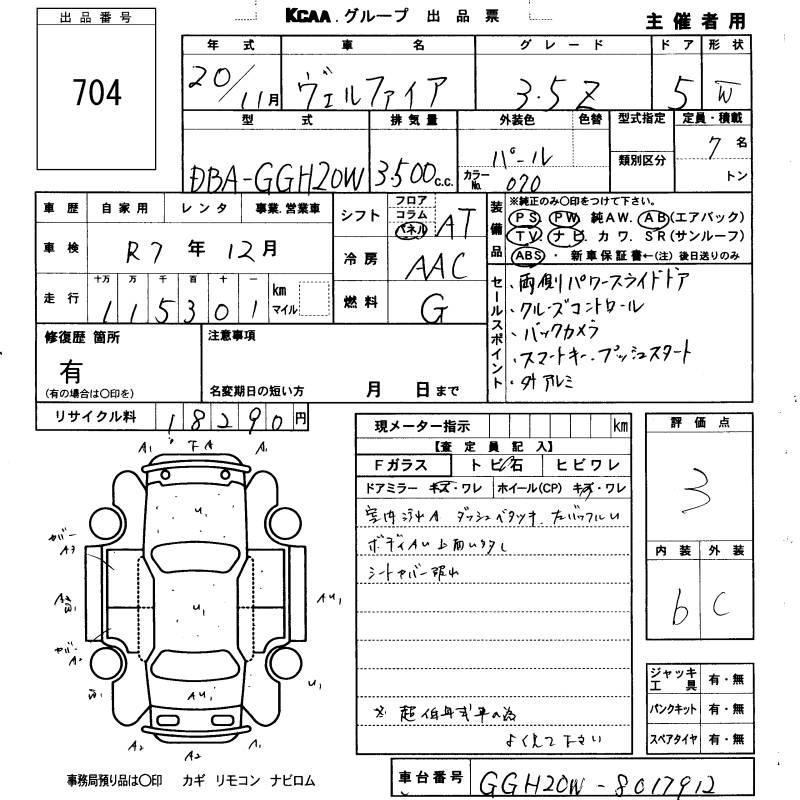 KCAA. グループ 出品票
主催者用
出品番号
704
年式 車名 グレード ドア 形状
20/11月 ヴェルファイア 3.5Z 5 W
型式 排気量 外装色 色替 型式指定 定員・積載
DBA-GGH20W 3.500c.c. パール 7名
カラーNo. 070 類別区分 トン
車歴 自家用 レンタ 事業.営業車
シフト フロア コラム パネル AT
車検 R7年12月
冷房 AAC
走行 十万 万 千 百 十 一
115301 km マイル
燃料 G
装備品
※純正のみ〇印をつけて下さい。
PS. PW. 純AW. AB(エアバック)
TV. ナビ. カワ. SR(サンルーフ)
ABS ・ 新車保証書←(注)後日送りのみ
セールスポイント
・両側パワースライドドア
・クルーズコントロール
・バックカメラ
・スマートキー.プッシュスタート
・外アルミ
修復歴 箇所
有
(有の場合は〇印を)
注意事項
名変期日の短い方 月 日まで
リサイクル料 18290円
現メーター指示 km
【査定員記入】
Fガラス トビ石 ヒビワレ
ドアミラー キズ・ワレ ホイール(CP) キズ・ワレ
室内汚れA ダッシュベタツキ.
ボディAU
シートカバー
よく見て下さい
評価点
3
内装 外装
b C
ジャッキ工具 有・無
パンクキット 有・無
スペアタイヤ 有・無
A1 A A1
U1
カバー A3
U1
AU1
カバー
AU1
U1
A2 A2 A1
事務局預り品は〇印 カギ リモコン ナビロム
車台番号 GGH20W-8017912